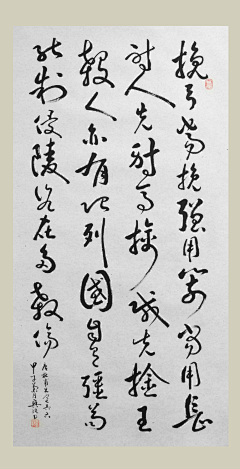 挽弓當挽强用箭當用長
射人先射馬擒賊先擒王
殺人亦有限列國自有疆苟
能制侵陵豈在多殺傷